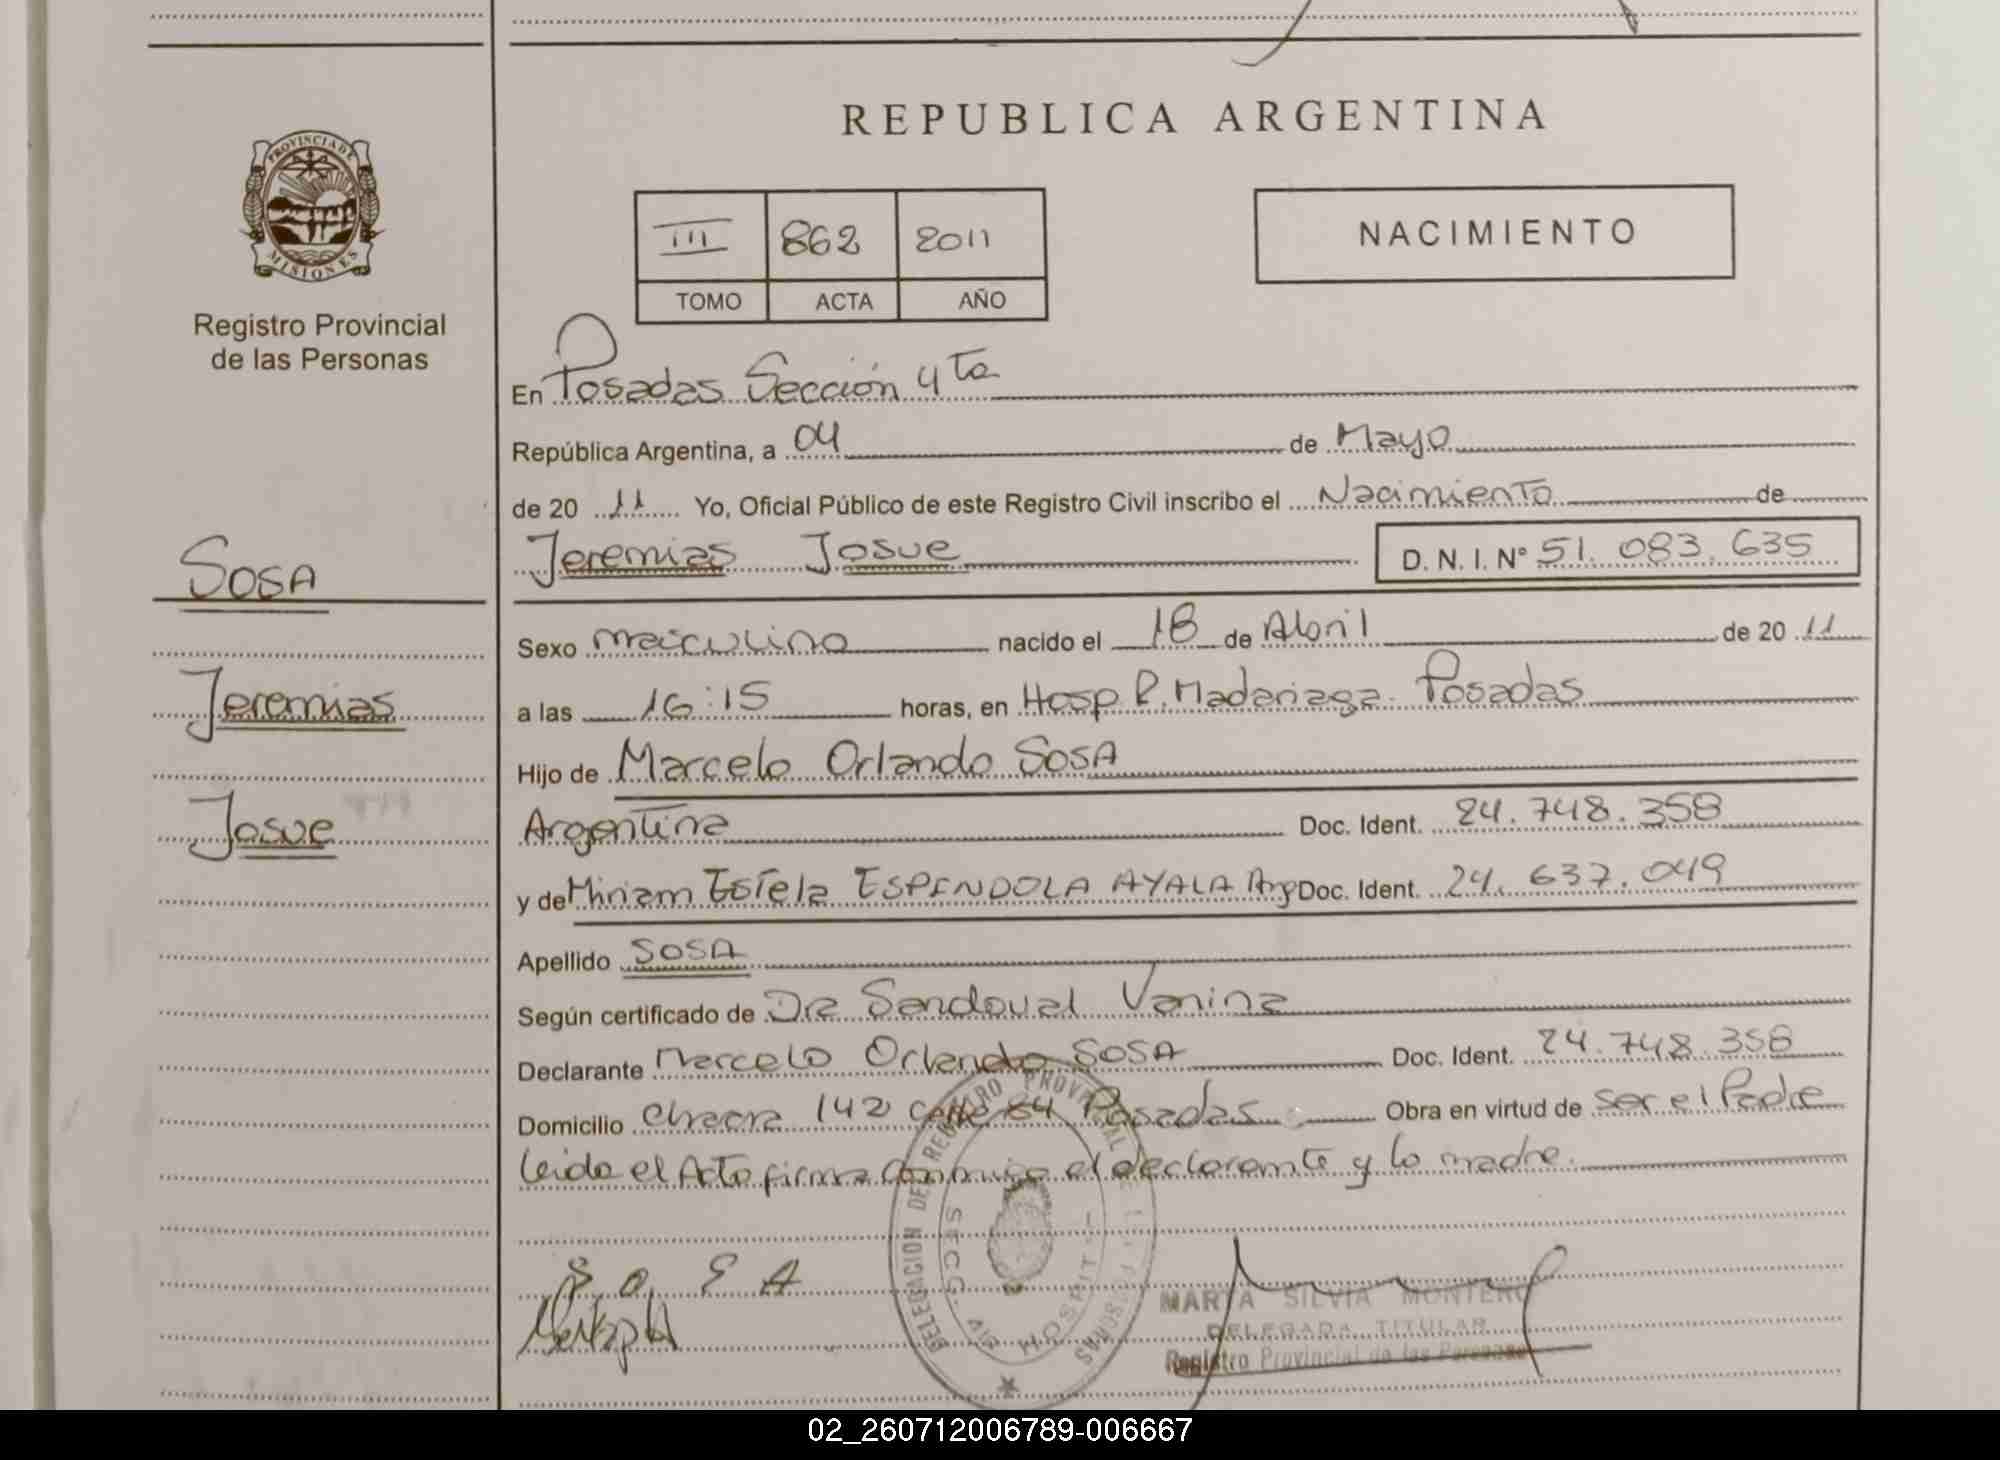 REPUBLICA ARGENTINA
PROVINCIA DE
MISIONES
Registro Provincial
de las Personas
III 862 2011
TOMO ACTA AÑO
NACIMIENTO
En Posadas Sección 4ta
República Argentina, a 04 de Mayo
de 20 11 Yo, Oficial Público de este Registro Civil inscribo el Nacimiento de
Jeremias Josue D. N. I. Nº 51.083.635
SOSA
Jeremias
Josue
Sexo masculino nacido el 18 de Abril de 20 11
a las 16:15 horas, en Hosp R. Madariaga. Posadas
Hijo de Marcelo Orlando SOSA
Argentina Doc. Ident. 24.748.358
y de Miriam Estela ESPINDOLA AYALA Arg Doc. Ident. 24.637.049
Apellido SOSA
Según certificado de Dra Sandoval Vanina
Declarante Marcelo Orlando SOSA Doc. Ident. 24.748.358
Domicilio chacra 142 calle 64 Posadas Obra en virtud de ser el Padre
leida el Acta firma conmigo el declarante y la madre.
S O E A
DELEGACION DEL REGISTRO PROVINCIAL DE LAS PERSONAS
SECC. HOSPIT
MARTA SILVIA MONTERO
DELEGADA TITULAR
Registro Provincial de las Personas
02_260712006789-006667